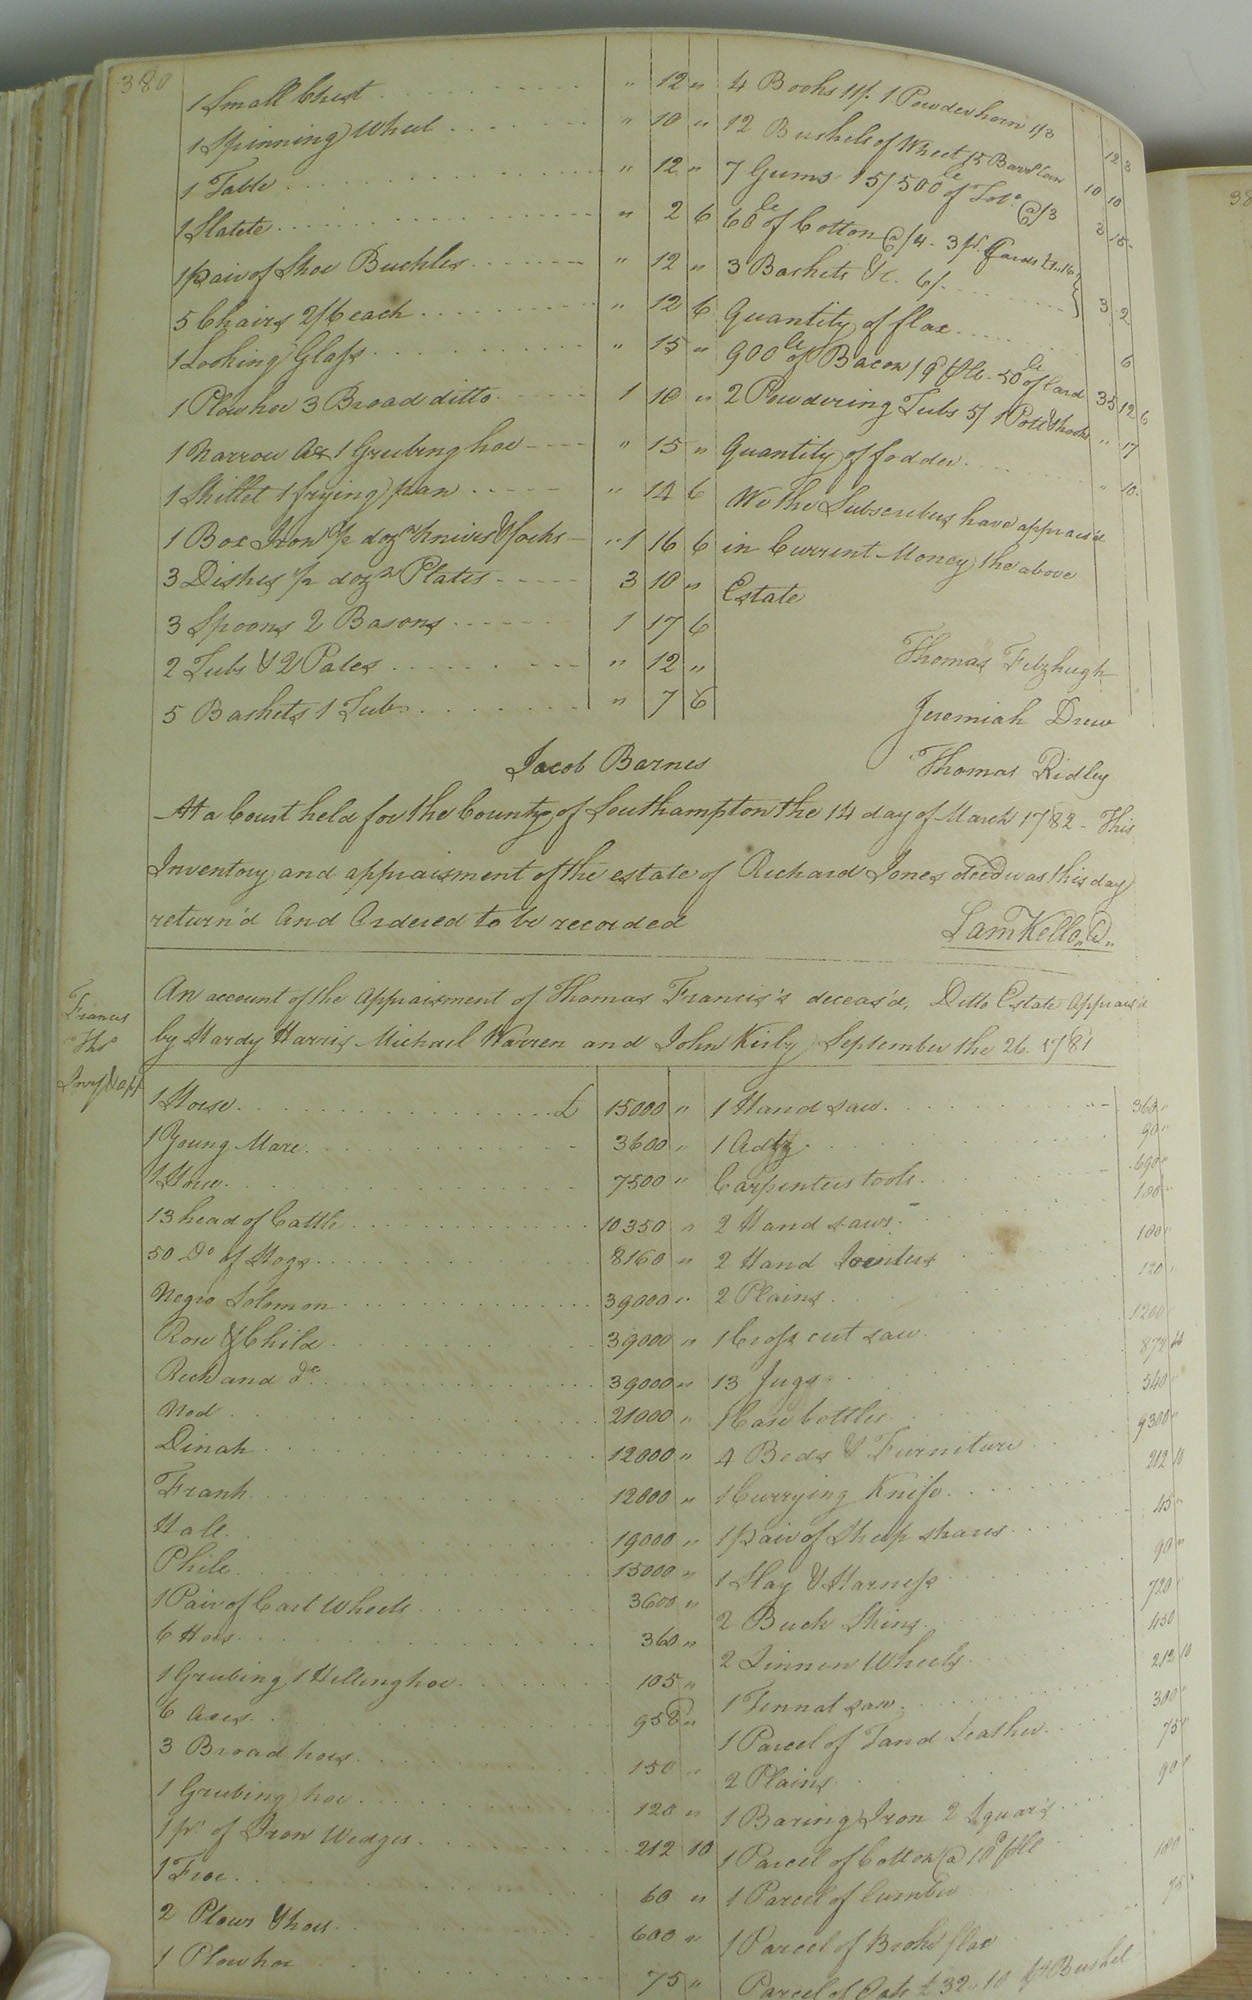 380
1 Small Chest " 12 "
1 Spinning Wheel " 10 "
1 Table " 12 "
1 Slatete " 2 6
1 pair of Shoe Buckles " 12 "
5 Chairs 2/6 each " 12 6
1 Looking Glass " 15 "
1 Plow hoe 3 Broad ditto 1 10 "
1 Narrow Ax 1 Grubing hoe " 15 "
1 Skillet 1 frying pan " 14 6
1 Box Iron ½ dozn Knives & forks " 1 16 6
3 Dishes ½ dozn Plates 3 10 "
3 Spoons 2 Basons 1 17 6
2 Tubs & 2 Pales " 12 "
5 Baskets 1 Tub " 7 6
4 Books 11/. 1 Powderhorn 1/3 12 3
12 Bushels of Wheet 15 Barrl Corn 10 10
7 Gums 15/ 500 le of Tobo. @/3
60 le of Cotton @/4 - 3 pr. Cards
3 Baskets &c. 6/. 3 2
Quantity of flax 6
900 le of Bacon /9d ℔le. 50 le of Lard 35 12 6
2 Powdering Tubs 5/ 1 Pott & hooks " 17
Quantity of fodder " 10.
We the Subscribers have apprais'd
in Current Money the above
Estate
Thomas Fitzhugh
Jeremiah Drew
Jacob Barnes Thomas Ridley
At a Court held for the County of Southampton the 14 day of March 1782 - This
Inventory and appraisment of the estate of Richard Jones decd was this day
return'd And Ordered to be recorded
Sam Kello, C
Francis
Thos
Invy & appt
An account of the Appraisment of Thomas Francis's deceas'd, Ditto Estate Apprais'd
by Hardy Harris Michael Warren and John Kirby September the 26. 1781
1 Horse £ 15000 "
1 Young Mare 3600 "
1 Horse 7500 "
13 head of Cattle 10350 "
50 Do of Hogs 8160 "
Negro Solomon 39000 "
Rose & Child 39000 "
Rich and do 39000 "
Ned 21000 "
Dinah 12000 "
Frank 12000 "
Hale 19000 "
Phile 15000 "
1 Pair of Cart Wheels 3600 "
6 Hoes 360 "
1 Grubing 1 Hilling hoe 105 "
6 Axes 958 "
3 Broad hoes 150 "
1 Grubing hoe 120 "
1 pr. of Iron Wedges 212 10
1 Froe 60 "
2 Plows & hoes 600 "
1 Plow hoe 75 "
1 Hand saw 360 "
1 Adz 90 "
Carpenters tools 690 "
2 Hand saws 180 "
2 Hand Jointers 180 "
2 Plains 120 "
1 Cross cut saw 1200 "
13 Jugs
1 Case bottles 540 "
4 Beds & Furniture 9300 "
1 Currying Knife 212 10
1 pair of Sheep shares 45 "
1 Slay & Harness 90 "
2 Buck Skins 720 "
2 Linnen Wheels 450
1 Tennat saw 212 10
1 Parcel of Tand Leather 300 "
2 Plains 75 "
1 Baring Iron 2 Squar's 90 "
1 Parcel of Cotton @ 10d ℔le
1 Parcel of Lumber 180
1 Parcel of Broke flax 75 "
Parcel of Oats £ 32 " 10 ℔ Bushel